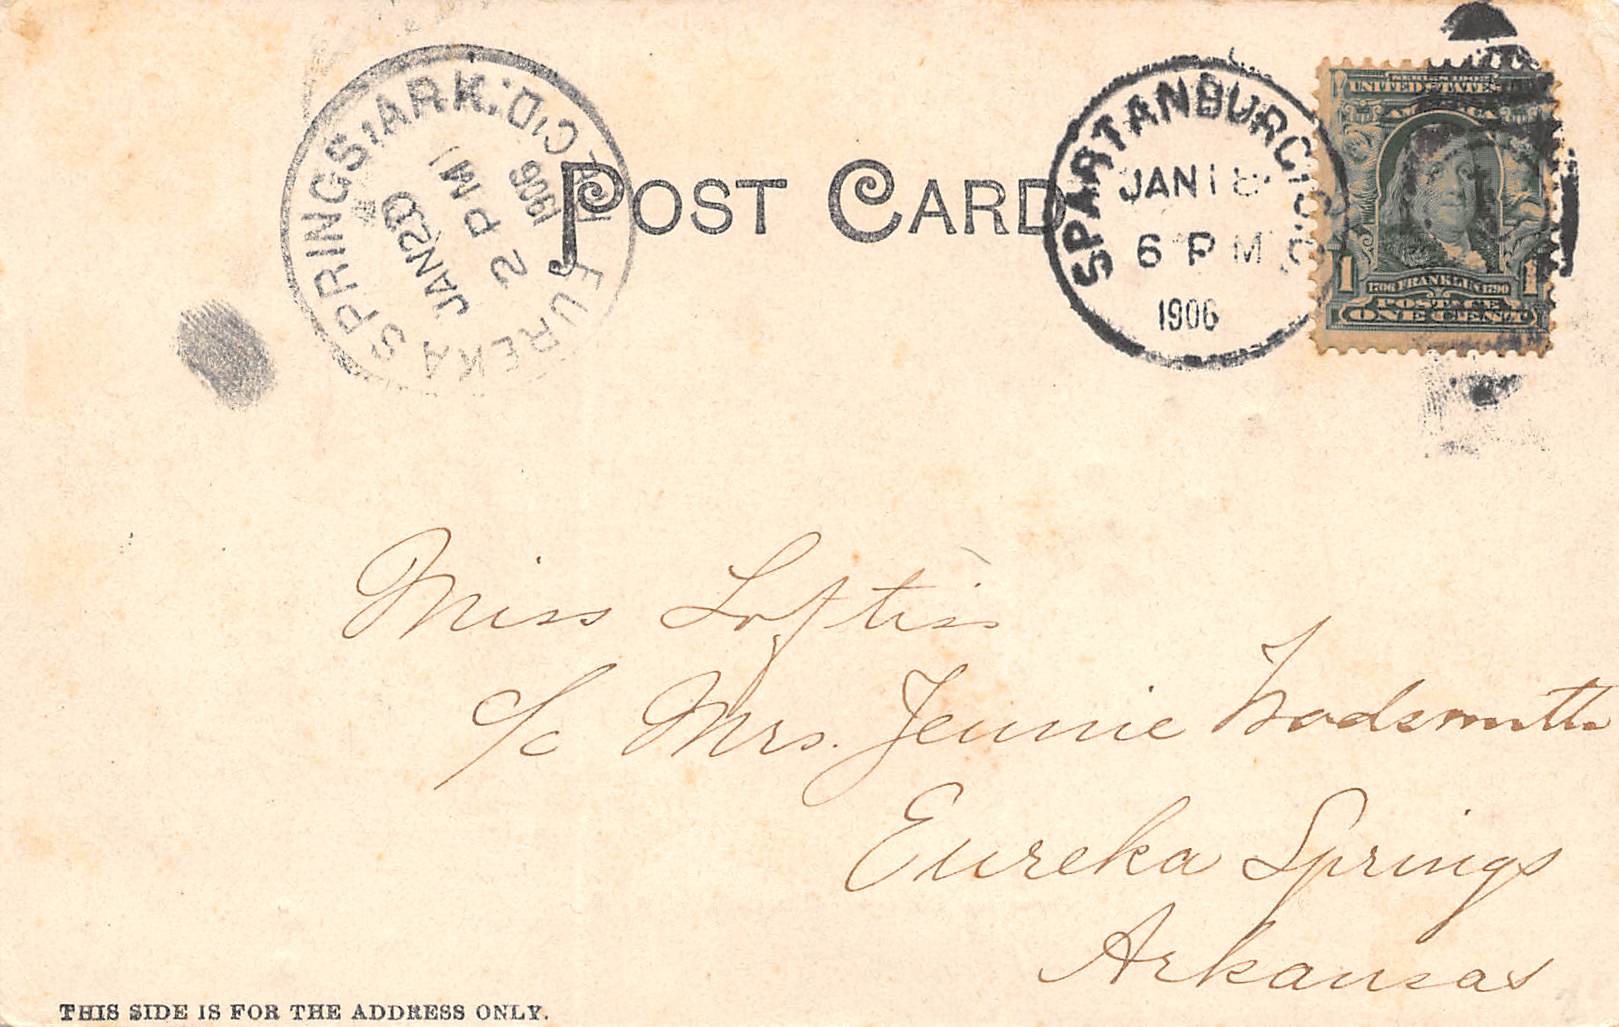 EUREKA SPRINGS, ARK. REC'D.
JAN 20
2 PM
1906
POST CARD
SPARTANBURG, S.C.
JAN 18
6 PM
1906
SERIES 1902
UNITED STATES
AMERICA
1
1
1706 FRANKLIN 1790
POSTAGE
ONE CENT
Miss Loftiss
c/o Mrs. Jennie Woodsmith
Eureka Springs
Arkansas
THIS SIDE IS FOR THE ADDRESS ONLY.